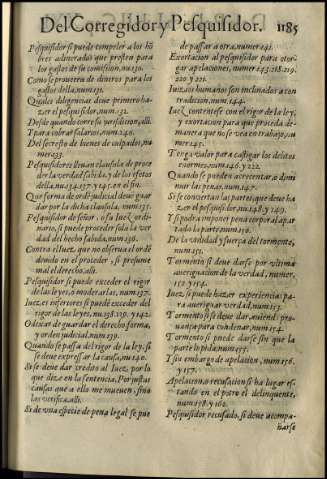 Del Corregidor y Pesquisidor. 1185
Pesquisidor si puede compeler a los hō
bres adinerados que presten para
los gastos de su comisiō, nu.130.
Como se proveera de dineros para los
gastos della, num.131.
Quales diligencias deue primero ha-
zer el pesquisidor, num.132.
Desde quando corre su pesquisicion, alli.
Y para cobrar salarios, num.240.
Del secresto de bienes de culpados, nu
mer.133.
Pesquisidores lleuan clausula de proce
der la verdad sabida, y de los efetos
della, nu.134.137. y 145. en el fin.
Que forma de ordē judicial deuē guar
dar por la dicha clausula, num.135.
Pesquisidor de señor, o su Iuez ordi-
nario, si puede proceder sola la ver
dad del hecho sabida, num.136.
Contra el Iuez, que no obserua el ordē
deuido en el proceder, si presume
mal el derecho. alli.
Pesquisidor si puede exceder el rigor
de las leyes, o moderarlas, num.137.
Iuezes inferiores si puedē exceder del
rigor de las leyes, nu.138.139. y 142.
O dexar de guardar el derecho forma,
y orden judicial, num.139.
Quando se passa del rigor de la ley, si
se deue expressar la causa, nu.140.
Si se deue dar credito al Iuez, por lo
que dize en la sentencia, Por justas
causas que a ello me mueuen, sino
las verifica. alli.
Si de vna especie de pena legal se pue
de passar a otra, numer.141.
Exortacion al pesquisidor para otor-
gar apelaciones, numer.143.218.219.
220. y 221.
Iuizios humanos son inclinados a con
tradicion, num.144.
Iuez contentese con el rigor de la ley,
y exortacion para que proceda de
manera que no se vea en trabajo, nu
mer.145.
Tenga valor para castigar los delitos
enormes, num.146. y 222.
Quando se pueden acrecentar, o dimi
nuir las penas, num.147.
Si se conciertan las partes, que deue ha
zer el pesquisidor, nu.148. y 149.
Y si podrà imponer pena corporal apar
tado la parte, num.150.
De la crueldad y fuerça del tormento,
num.151.
Tormento si deue darse por vltima
aueriguacion de la verdad, numer.
152. y 154.
Iuez, si puede hazer experiencias pa-
ra aueriguar verdad, num.153.
Tormento si se deue dar, auiendo pro-
uança para condenar, num.154.
Tormento si puede darse sin que la
parte lo pida, num.155.
Y sin embargo de apelacion, num.156.
y 157.
Apelacion, o recusacion si ha lugar es-
tando en el potro el delinquente,
num.158. y 160.
Pesquisidor recusado, si deue acompa-
ñarse